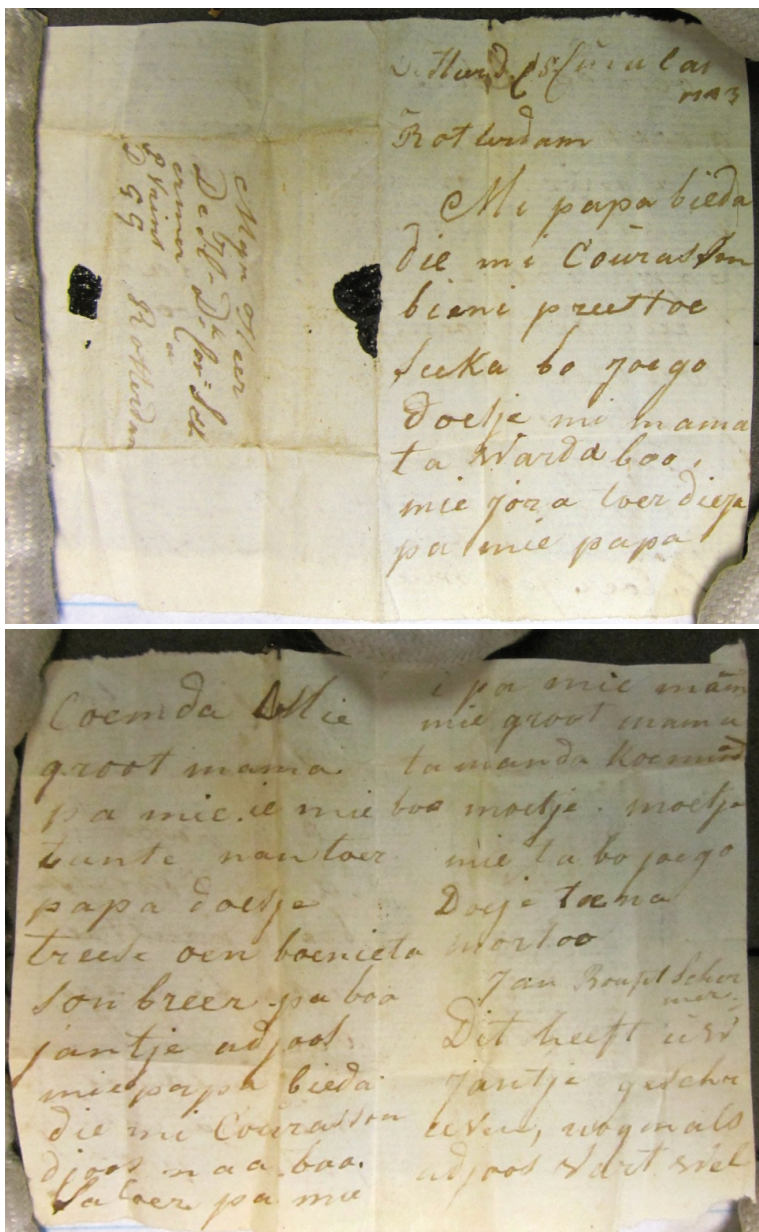 Myn Heer
De Hr. Dk. Cor=s Sch
ermer
a
P Vaint
D G G Rotterdam
Rotterdam
Mi papa bieda
die mi Courasson
bieni prees toe
seeka bo joego
doesje mi mama
ta Warda boo,
mie jora toer dieja
pa mie papa
Coemda Mie
groot mama
pa mie. ie mie
tante nan toer
papa doesje
treese oen boenieta
sonbreer pa boo
jantje adjoos
mie papa bieda
die mi Courasson
djoos naa boo.
sa toer pa mie
i pa mie mam
mie groot mama
ta manda koemenda
boo moetje. moetje
mie ta bo joego
Doesje toena
mortoo
Jan Boufet Scher
mer.
Dit heeft uw
jantje geschr
even, nogmals
adjoos Vart Wel